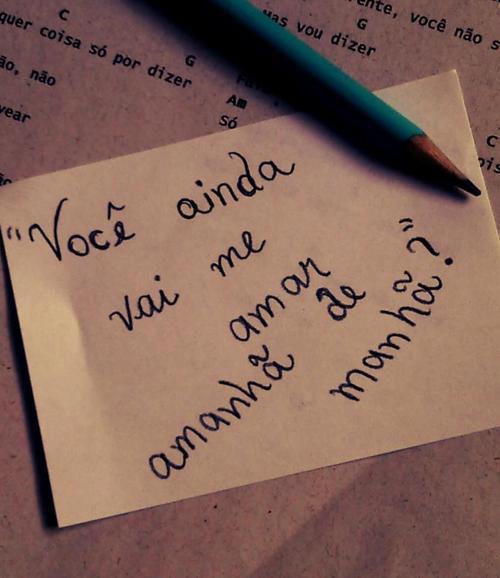 C
quer coisa só por dizer
G
ão, não
Am
Só
vear
Mas vou dizer
G
ente, você não s
C
"Você ainda
vai me
amar
amanhã de
manhã?"